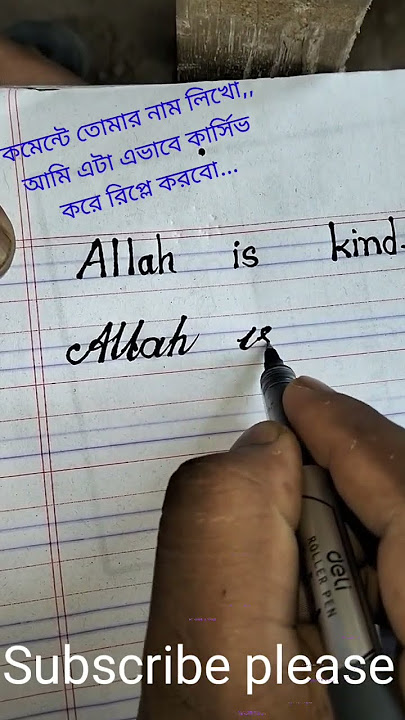 কমেন্টে তোমার নাম লিখো,,
আমি এটা এভাবে কার্সিভ
করে রিপ্লে করবো...
Allah is kind.
Allah is
deli
ROLLER PEN
Subscribe please